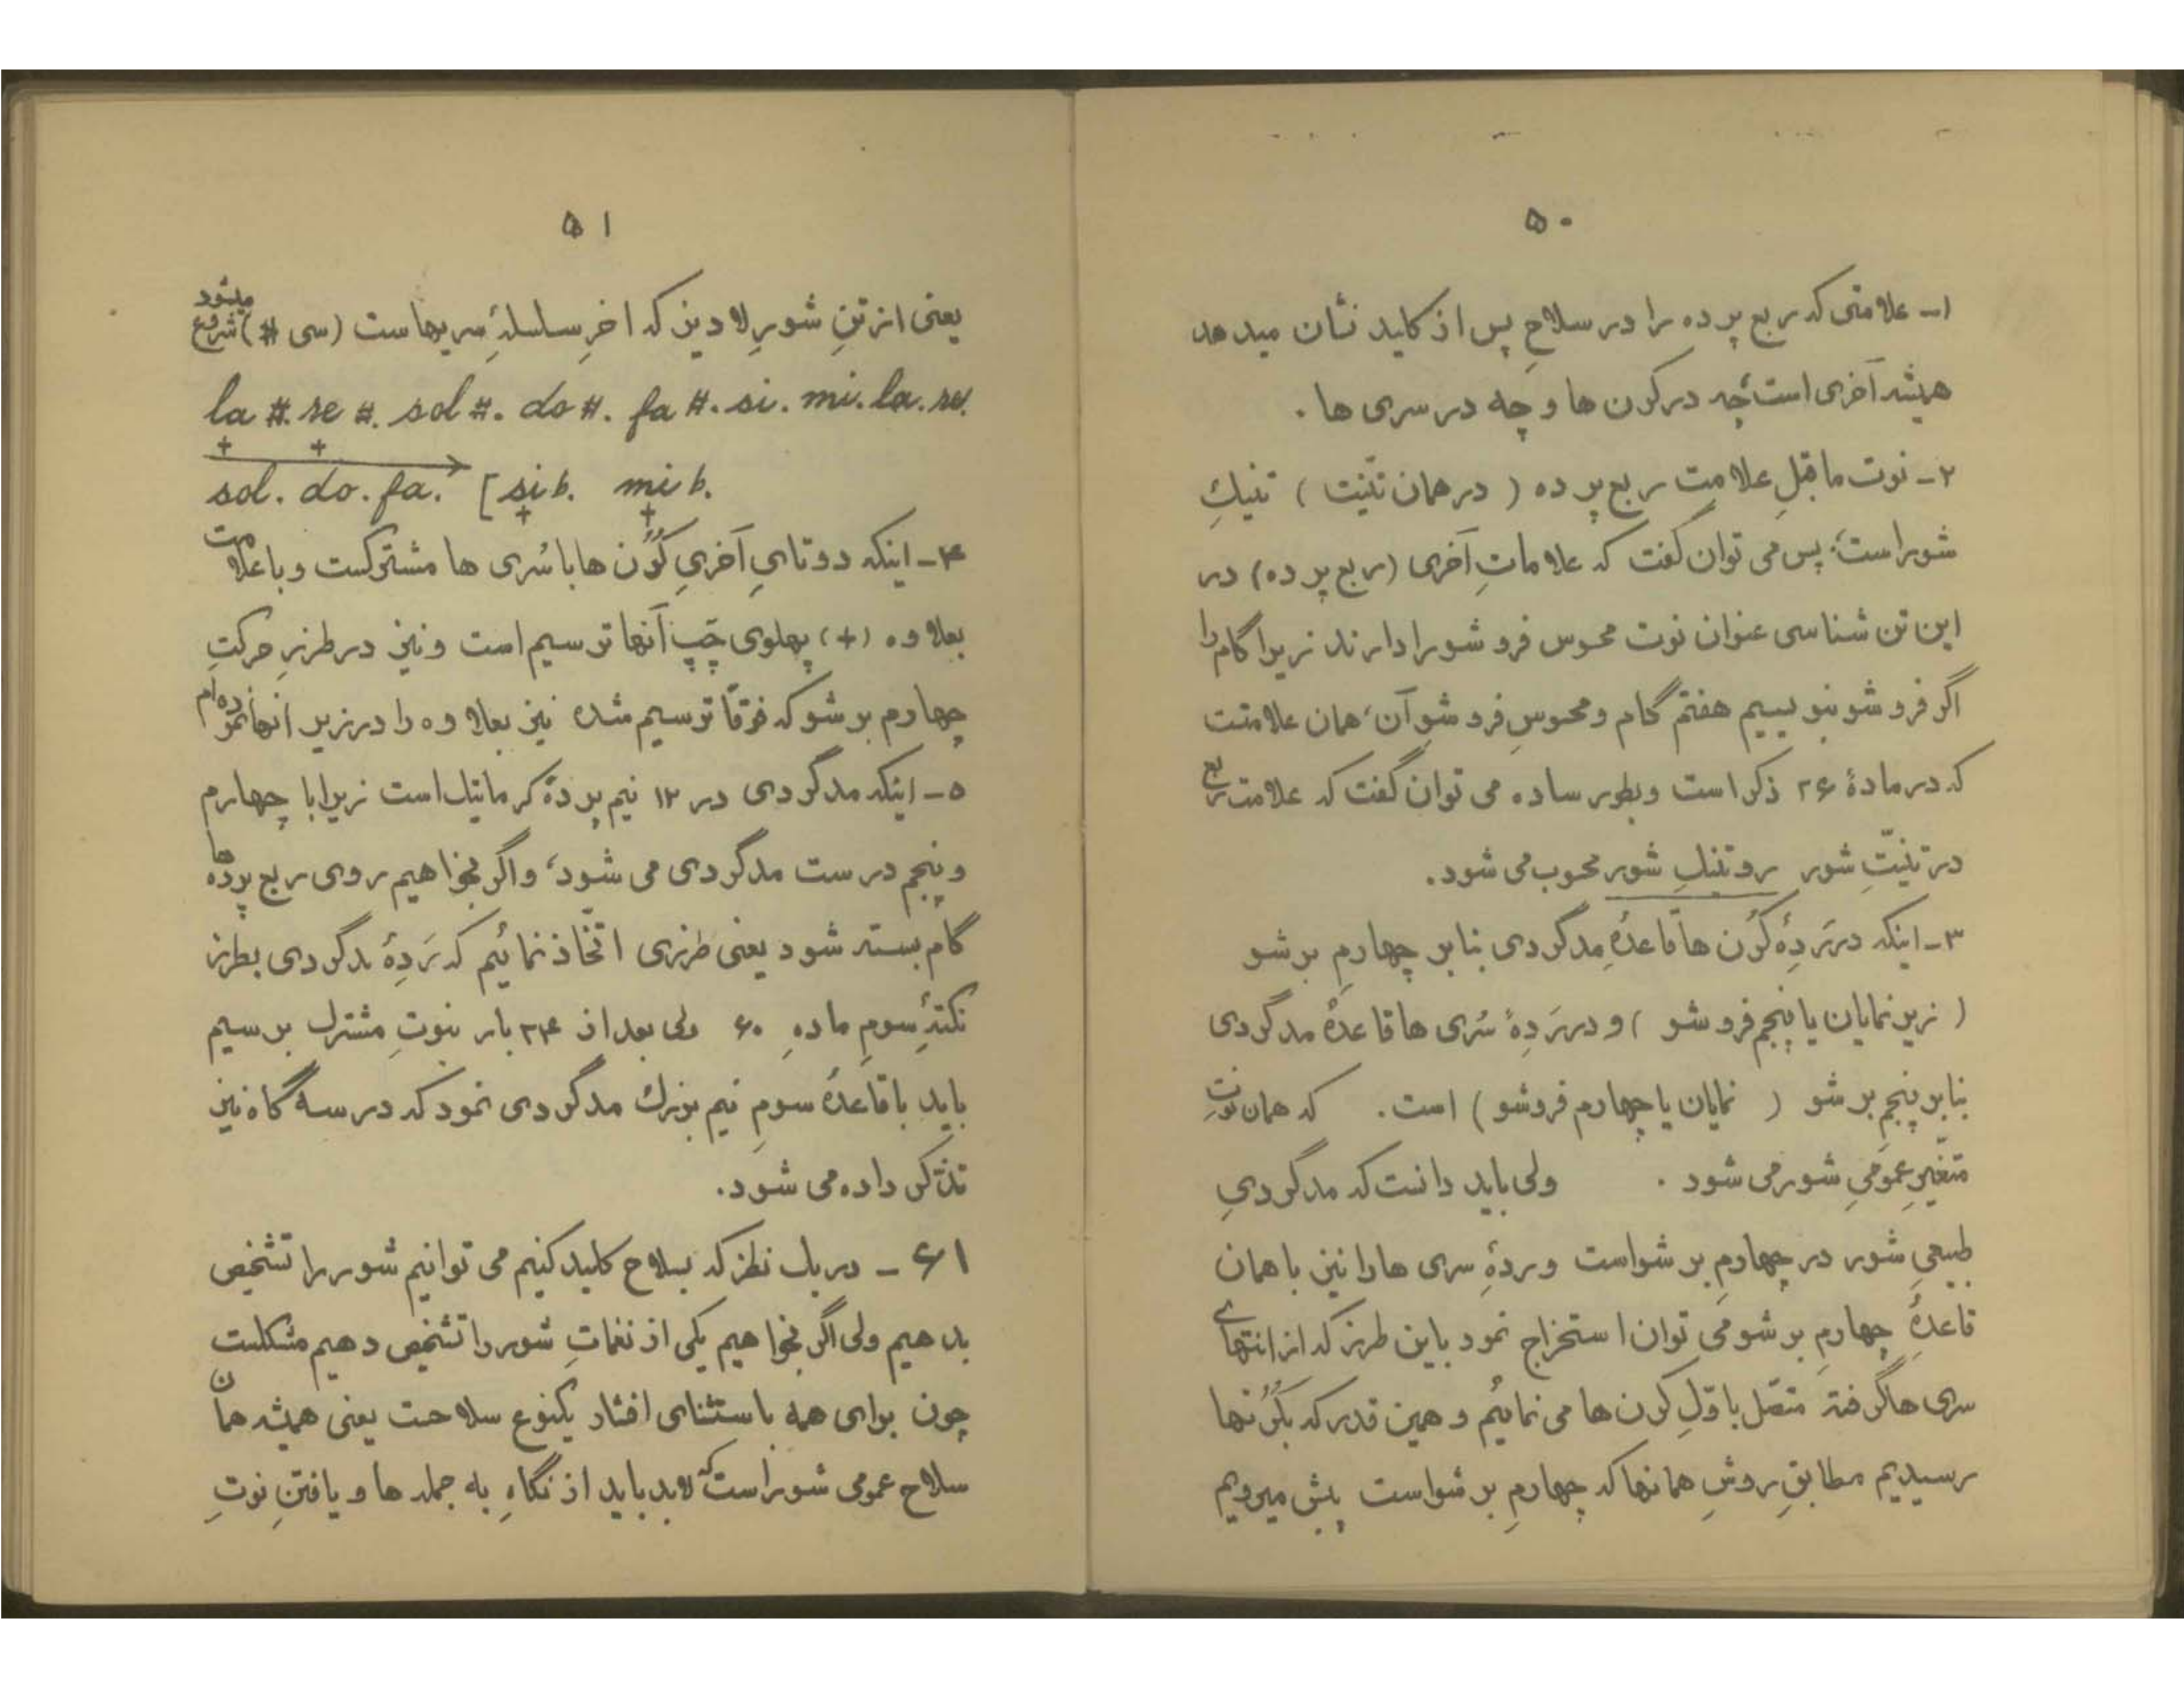 ۵۰
۱- علامتی که ربع پرده را در سلاحِ پس از کلید نشان میدهد
همیشه آخری است، چه در کرن ها و چه در سری ها.
۲- نوت ماقبلِ علامت ربع پرده (در همان تنیت) تنیکِ
شور است؛ پس می توان گفت که علاماتِ آخری (ربع پرده) در
این تن شناسی عنوان نوت محسوس فرو شو را دارند زیرا گام را
اگر فرو شو بنویسیم هفتم گام و محسوسِ فرو شوِ آن، همان علامتست
که در مادهٔ ۲۶ ذکر است و بطور ساده می توان گفت که علامت ربع
در تنیتِ شور روتنیکِ شور محسوب می شود.
۳- اینکه در رَدِهٔ کُرُن ها قاعدهٔ مدگردی بنا بر چهارمِ بر شو
(زیر نمایان یا پنجم فرو شو) و در رَدِهٔ سُری ها قاعدهٔ مدگردی
بنا بر پنجمِ بر شو (نمایان یا چهارم فروشو) است. که همان نوتِ
متغیرِ عمومیِ شور می شود. ولی باید دانست که مدگردیِ
طبیعیِ شور در چهارمِ بر شو است و ردهٔ سری ها را نیز با همان
قاعدهٔ چهارمِ بر شو می توان استخراج نمود باین طرز که از انتهای
سری ها گرفته متصّل باوّلِ کرن ها می نمائیم و همین قدر که بکُرُنها
رسیدیم مطابقِ روشِ همانها که چهارمِ بر شو است پیش میرویم
۵۱
یعنی از تنِ شورِ لا دیز که اخرِ سلسلهٔ سریهاست (سی #) شروع میشود
la #. re #. sol #. do #. fa #. si. mi. la. re.
sol. do. fa. [si b. mi b.
۴- اینکه دوتایِ آخریِ کُرُن ها با سُری ها مشترکست و با علامت
بعلاوه (+) پهلوی چَپِ آنها ترسیم است و نیز در طرزِ حرکتِ
چهارم بر شو که فوقاً ترسیم شده نیز بعلاوه را در زیر انها نموده ام
۵- اینکه مدگردی در ۱۲ نیم پردهٔ کرماتیک است زیرا با چهارم
و پنجم درست مدگردی می شود، و اگر بخواهیم روی ربع پرده ها
گام بسته شود یعنی طرزی اتّخاذ نمائیم که رَدِهٔ مدگردی بطرز
نکتهٔ سومِ مادهِ ۶۰ ولی بعد از ۲۴ بار بنوتِ مشترک برسیم
باید با قاعدهٔ سومِ نیم بزرک مدگردی نمود که در سه گاه نیز
تذکر داده می شود.
۶۱ - در یک نظر که بسلاح کلید کنیم می توانیم شور را تشخیص
بدهیم ولی اگر بخواهیم یکی از نغماتِ شور را تشخیص دهیم مشکلست
چون برای همه باستثنای افشار یکنوع سلاحست یعنی همیشه همان
سلاح عمومی شور است که لابد باید از نگاهِ به جمله ها و یافتنِ نوتِ